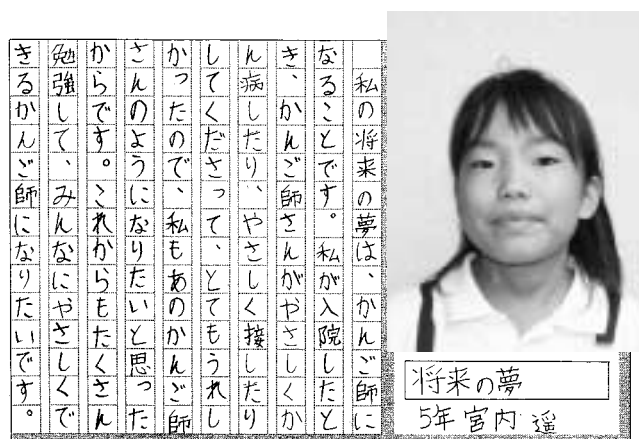 私の将来の夢は、かんご師に
なることです。私が入院したと
き、かんご師さんがやさしくか
ん病したり、やさしく接したり
してくださって、とてもうれし
かったので、私もあのかんご師
さんのようになりたいと思った
からです。これからもたくさん
勉強して、みんなにやさしくで
きるかんご師になりたいです。
将来の夢
5年 宮内 遥